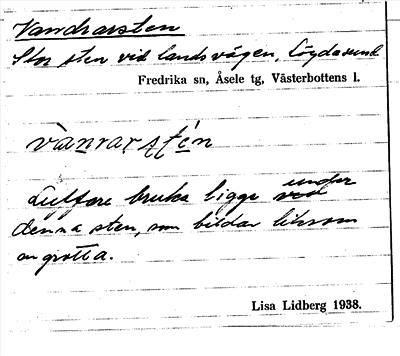 Vandrarsten
Stor sten vid landsvägen, Lögdasund
Fredrika sn, Åsele tg, Västerbottens l.
vànrarsté̀n
Luffare bruka ligga under
denna sten, som bildar liksom
en grotta.
Lisa Lidberg 1938.